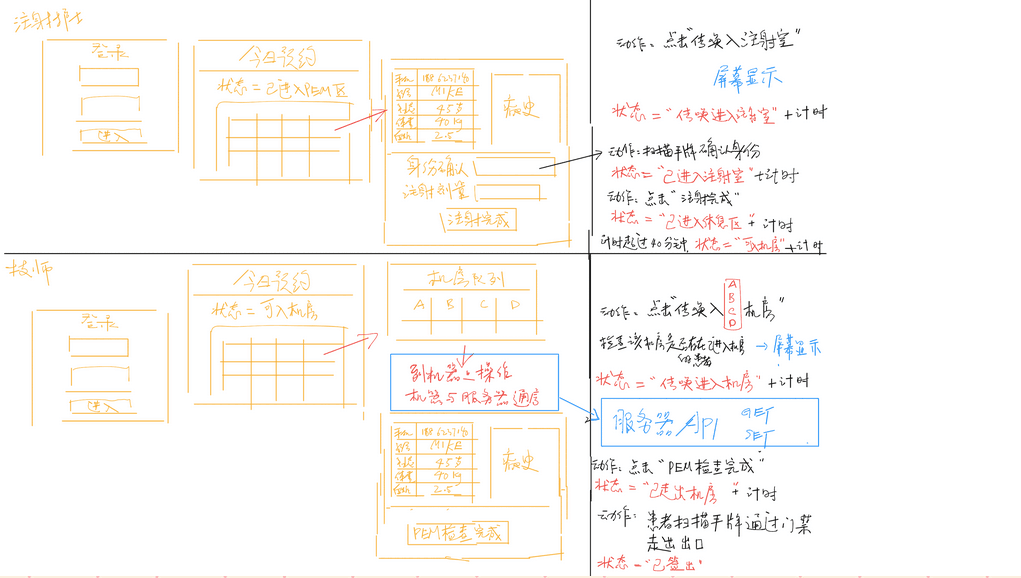 注射护士
登录
进入
今日预约
状态=已进入PEM区
MIKE
45岁
40 kg
2.5
病史
身份确认
注射剂量
注射完成
动作: 点击"传唤入注射室"
屏幕显示
状态="传唤进入注射室"+计时
动作: 扫描手牌确认身份
状态="已进入注射室"+计时
动作: 点击"注射完成"
状态="已进入休息区"+计时
计时超过40分钟, 状态="可入机房"+计时
技师
登录
进入
今日预约
状态=可入机房
机房队列
A B C D
到机器上操作
机器与服务器通信
MIKE
45岁
40 kg
2.5
病史
PEM检查完成
动作: 点击"传唤入 A B C D 机房"
检查该机房是否存在已进入机房
的患者
→屏幕显示
状态="传唤进入机房"+计时
服务器API GET
SET
动作: 点击"PEM检查完成"
状态="已走出机房"+计时
动作: 患者扫描手牌通过门禁
走出出口
状态="已签出"